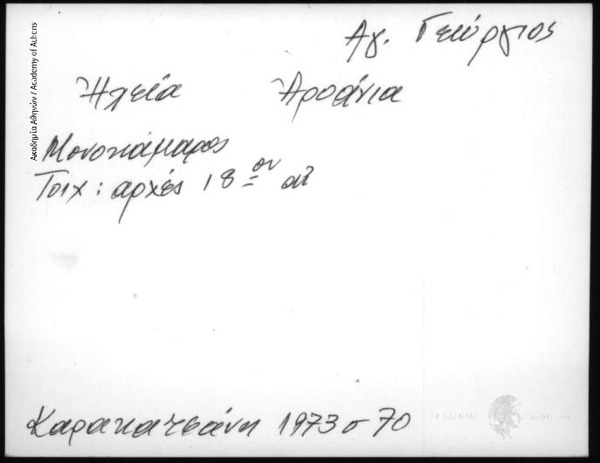 Αγ. Γεώργιος
Ηλεία Αροάνια
Μονοκάμαρος
Τοιχ: αρχές 18ου αι
Καρακατσάνη 1973 σ 70
Ακαδημία Αθηνών / Academy of Athens